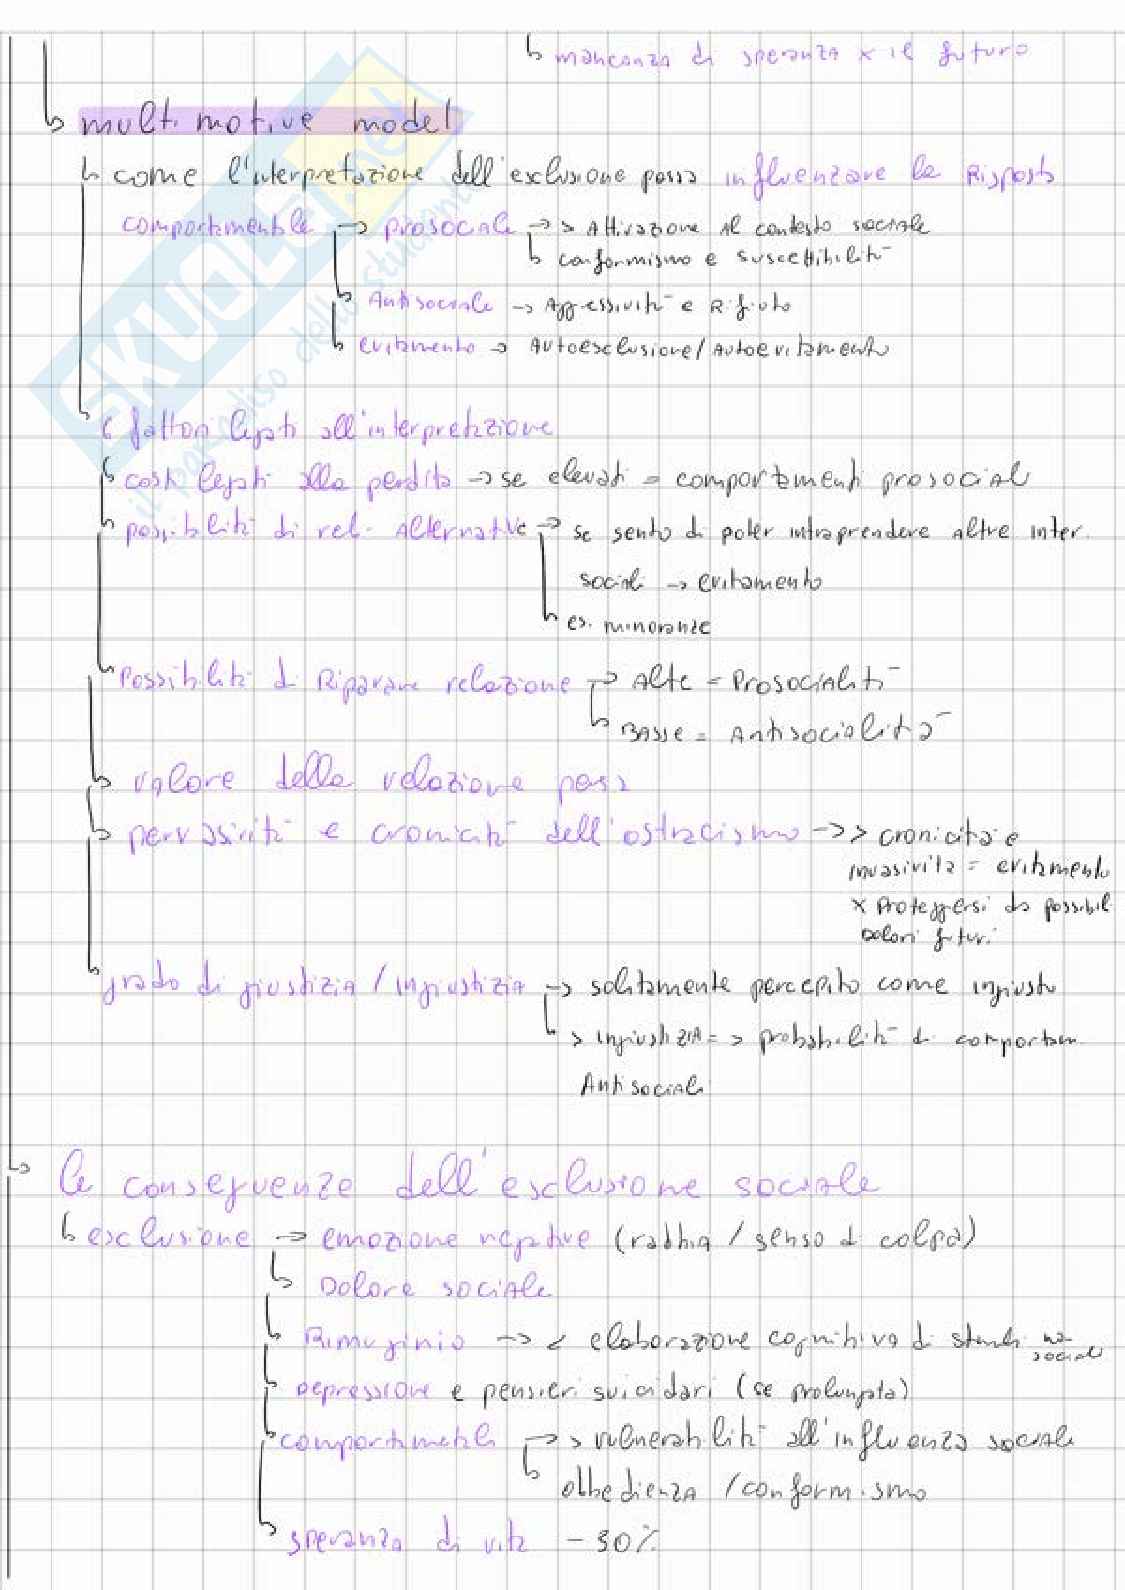 ↳ mancanza di speranza x il futuro
↳ multi motive model
↳ come l'interpretazione dell'esclusione possa influenzare la Risposta
comportamentale → prosociale → > Attivazione al contesto sociale
↳ conformismo e suscettibilità
↳ Antisociale → Aggressività e Rifiuto
↳ evitamento → Autoesclusione/Autoevitamento
↳ 6 fattori legati all'interpretazione
↳ costi legati alla perdita → se elevati = comportamenti prosociali
↳ possibilità di rel. Alternative → se sento di poter intraprendere altre inter.
sociali → evitamento
↳ es. minoranze
↳ Possibilità di Riparare relazione → Alte = Prosocialità
↳ Basse = Antisocialità
↳ valore della relazione persa
↳ pervasività e cronicità dell'ostracismo → > cronicità e
invasività = evitamento
x proteggersi da possibili
Dolori futuri
↳ grado di giustizia / ingiustizia → solitamente percepito come ingiusto
↳ > ingiustizia = > probabilità di comportam.
Antisociali
↳ le conseguenze dell'esclusione sociale
↳ esclusione → emozione negative (rabbia / senso di colpa)
↳ Dolore sociale
↳ Rimuginio → < elaborazione cognitiva di stimoli no
sociali
↳ Depressione e pensieri suicidari (se prolungata)
↳ comportamentali → > vulnerabilità all'influenza sociale
↳ obbedienza / conformismo
↳ speranza di vita -30%
SKUOLA.net
il paradiso dello studente